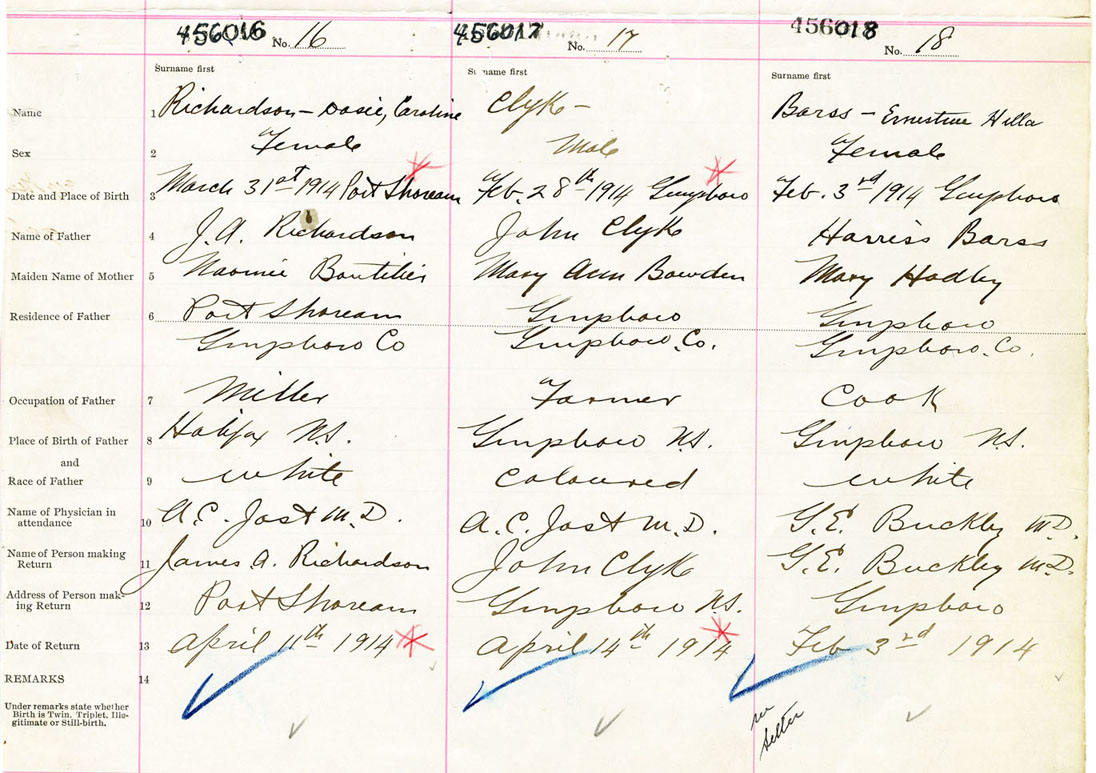 456016 No. 16 456017 No. 17 456018 No. 18
Surname first Surname first Surname first
Name 1 Richardson – Dosie, Caroline Clyke – Barss – Ernestine Hilla
Sex 2 Female Male Female
Date and Place of Birth 3 March 31st 1914 Port Shoream Feb. 28th 1914 Guysboro Feb. 3rd 1914 Guysboro
Name of Father 4 J. A. Richardson John Clyke Harriss Barss
Maiden Name of Mother 5 Naomie Boutilier Mary Ann Bowden Mary Hadley
Residence of Father 6 Port Shoream Guysboro Guysboro
Guysboro Co Guysboro. Co. Guysboro. Co.
Occupation of Father 7 Miller Farmer Cook
Place of Birth of Father 8 Halifax N.S. Guysboro N.S. Guysboro N.S.
and
Race of Father 9 White Coloured White
Name of Physician in
attendance 10 A. C. Jost M. D. A. C. Jost M. D. G. E. Buckley M.D.
Name of Person making
Return 11 James A. Richardson John Clyke G. E. Buckley M.D.
Address of Person mak-
ing Return 12 Port Shoream Guysboro N.S. Guysboro
Date of Return 13 April 11th 1914 April 14th 1914 Feb 3rd 1914
REMARKS 14
Under remarks state whether
Birth is Twin, Triplet, Ille-
gitimate or Still-birth.
letter